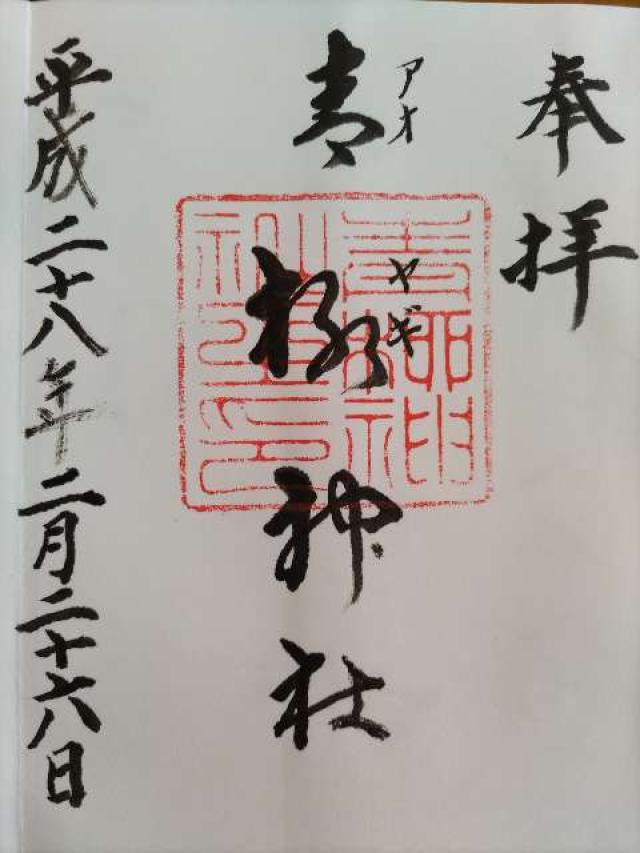 奉拝
青柳神社
アオヤギ
青柳神社璽印
平成二十八年二月二十六日